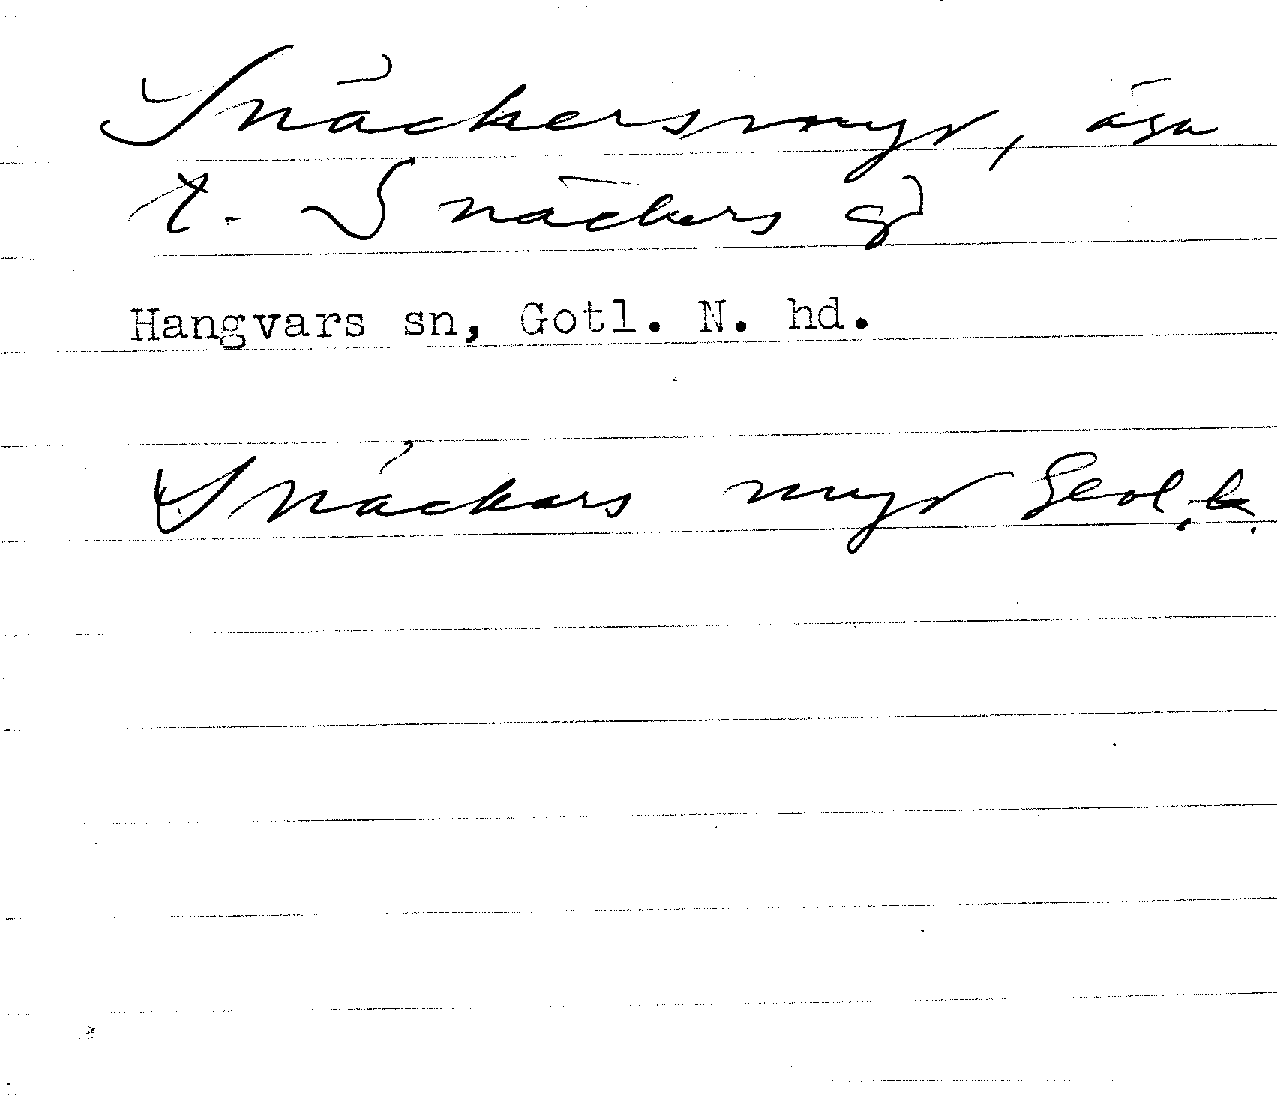 Snäckersmyr, äga
t. Snäckers gd
Hangvars sn, Gotl. N. hd.
Snäckars myr Geol.k.